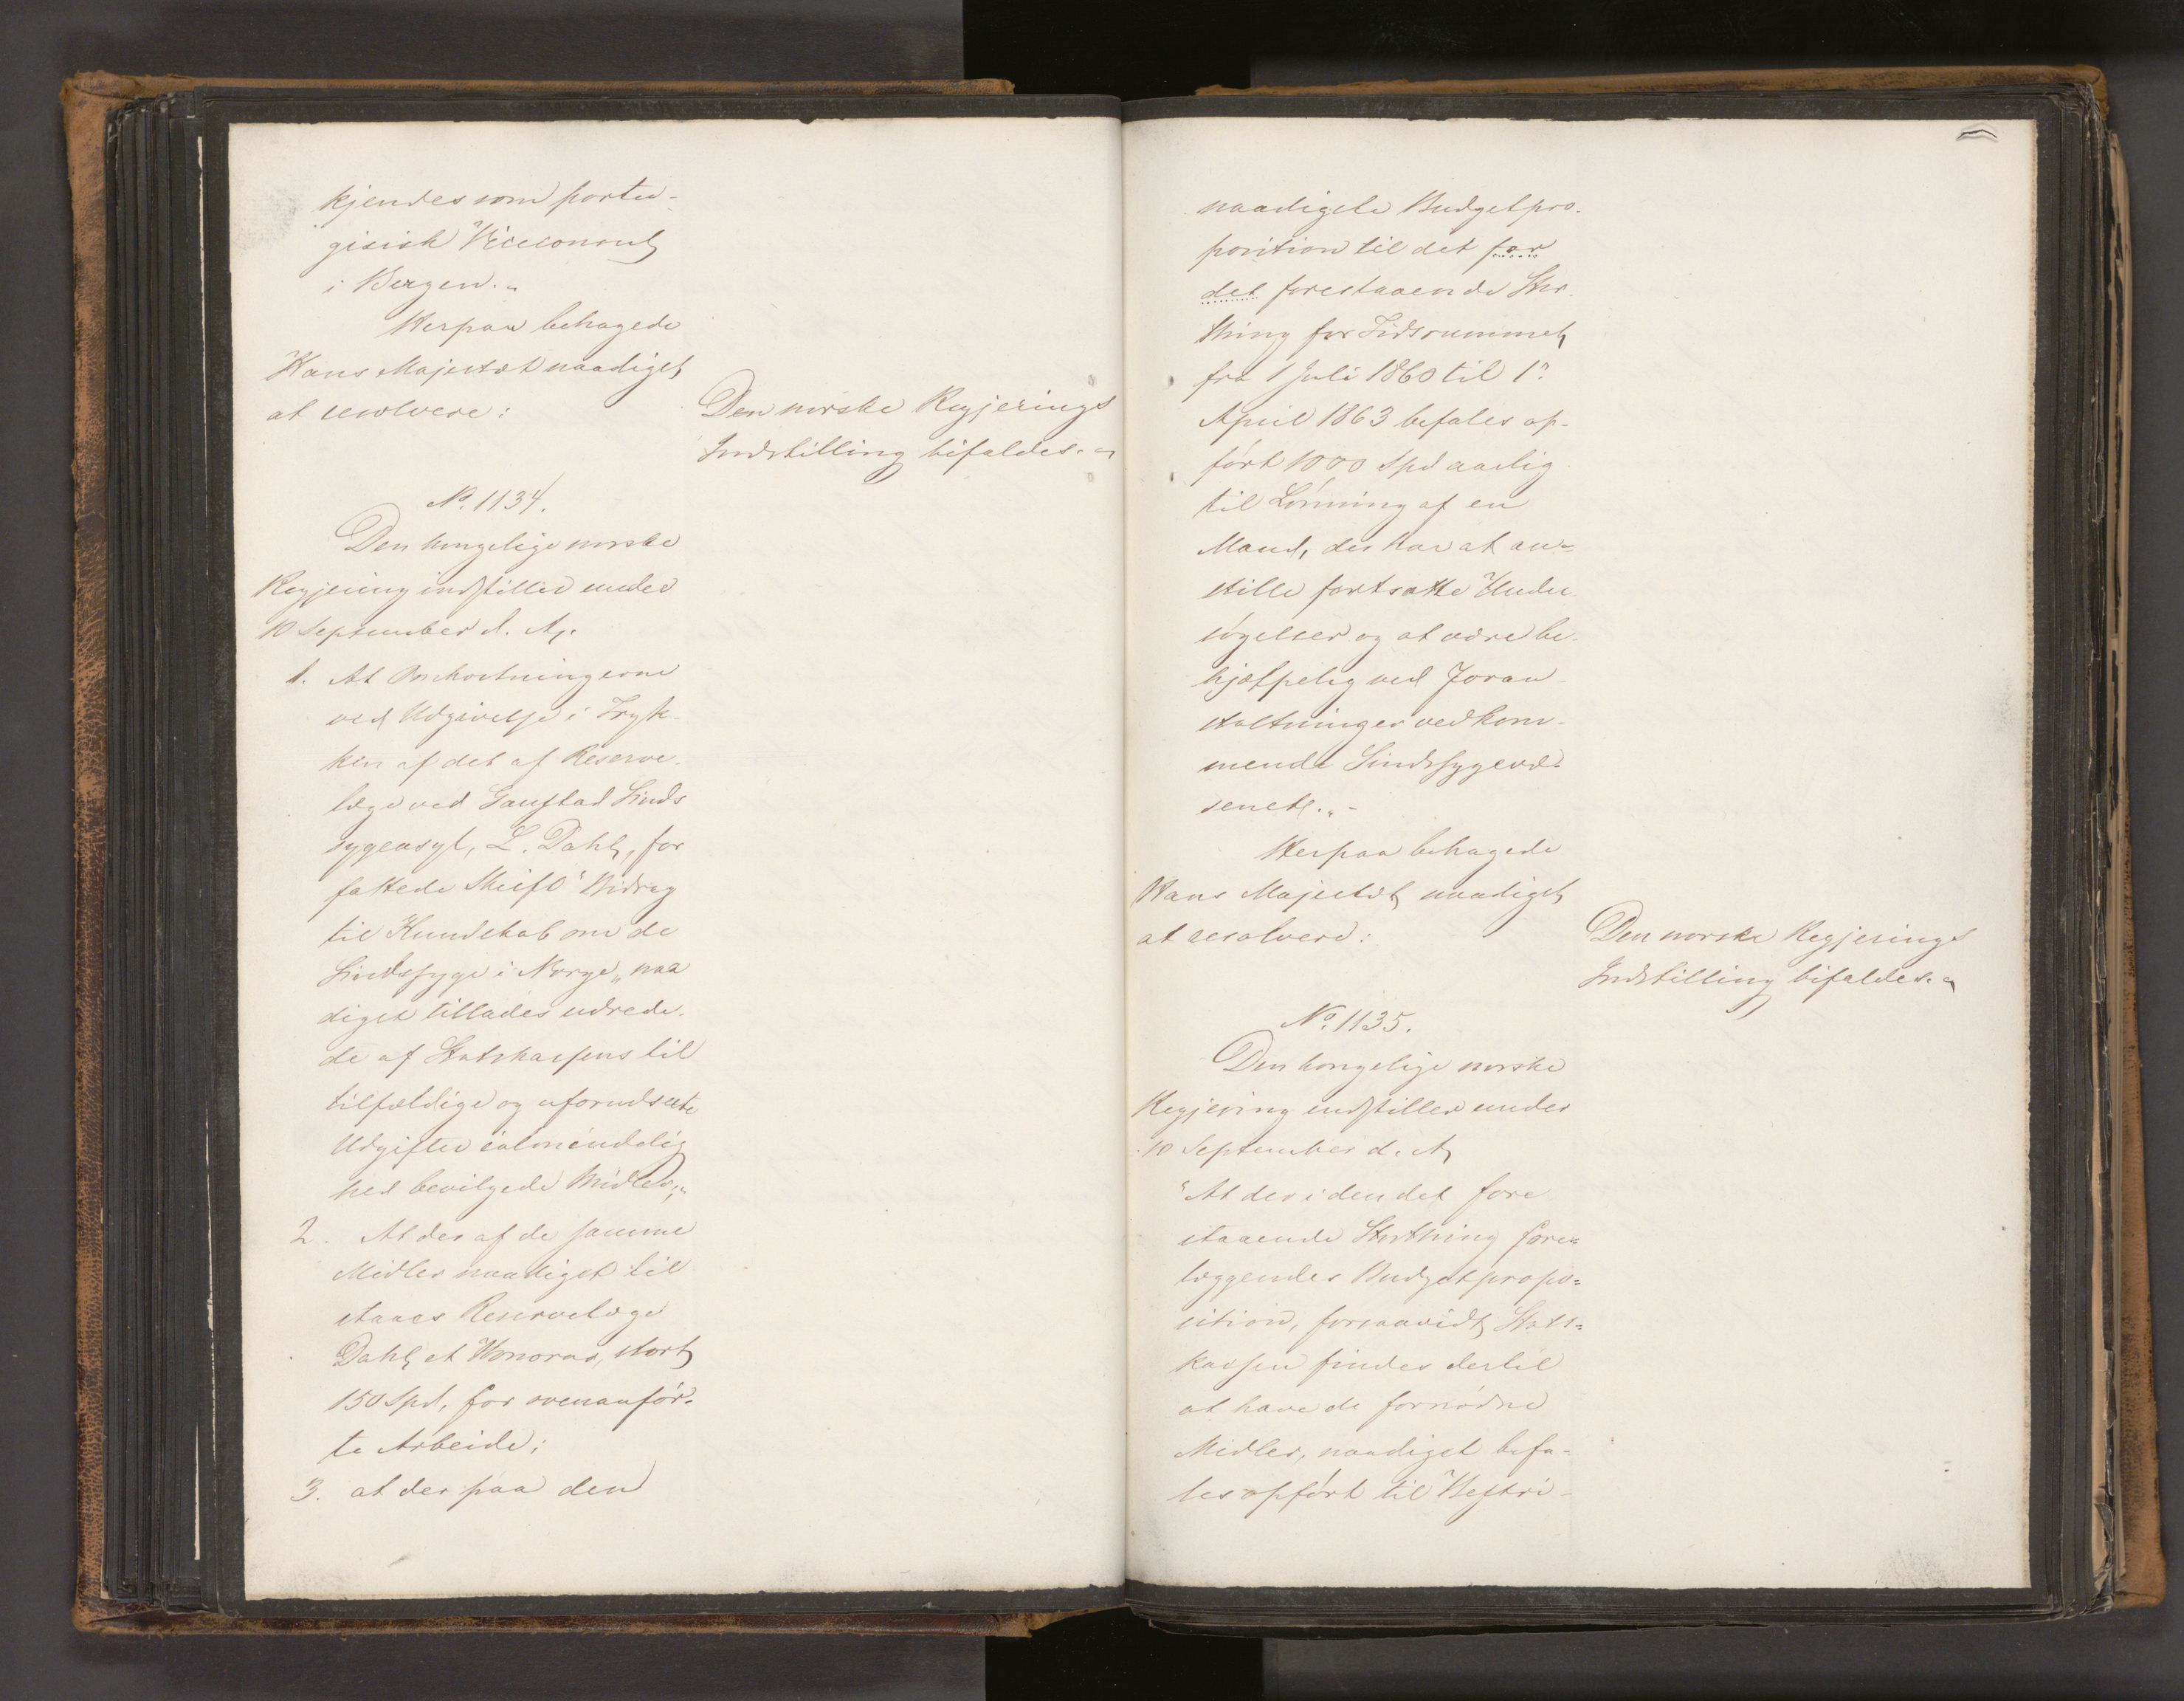 kjendes som portu-
gisisk Viceconsul
i Bergen.„
Herpaa behagede
Hans Majestæt naadigst
at resolvere:
Den norske Regjerings
Indstilling bifaldes.
No. 1134.
Den kongelige norske
Regjering indstiller under
10 September d. A.
1. At Omkostningerne
ved Udgivelse i Tryk-
ken af det af Reserve-
læge ved Gaustad Sinds
sygeasyl, L. Dahl, for
fattede Skrift "Bidrag
til Kundskab om de
Sindssyge i Norge„ naa
digst tillades udrede-
de af Statskassens til
tilfældige og uforudseete
Udgifter i almindelig
hed bevilgede Midler;„
2. At der af de samme
Midler naadigst til
staaes Reservelæge
Dahl et Honorar, stort
150 Spd, for ovenanfør-
te Arbeide;
3. at der paa den
naadigste Budgetpro-
position til det for
det forestaaende Stor
thing for Tidsrummet
fra 1 Juli 1860 til 1n
April 1863 befales op-
ført 1000 Spd aarlig
til Lønning af en
Mand, der har at an-
stille fortsatte Under
søgelser og at være be-
hjælpelig ved Foran-
staltninger vedkom-
mende Sindssygevæ-
senet.„-
Herpaa behagede
Hans Majestæt naadigst
at resolvere:
Den norske Regjerings
Indstilling bifaldes.
No. 1135.
Den kongelige norske
Regjering indstiller under
10 September d. A
"At der i den det fore
staaende Storthing fore=
læggendes Budgetpropo=
sition, forsaavidt Stats=
kassen findes dertil
at have de fornødne
Midler, naadigst befa-
les opført til Bestri-